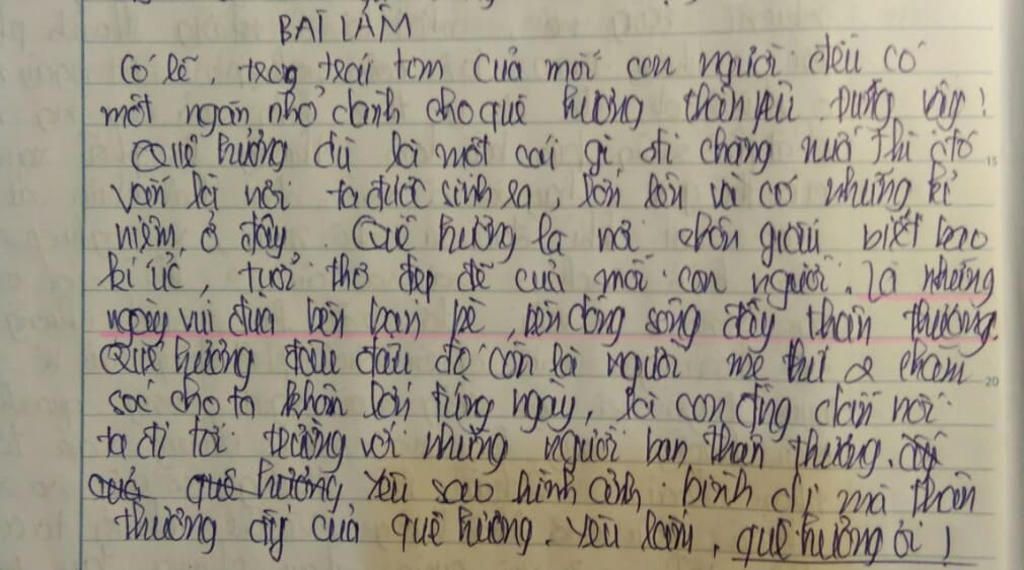 BÀI LÀM
Có lẽ, trong trái tim của mỗi con người đều có
một ngăn nhỏ dành cho quê hương thân yêu. Đúng vậy!
Quê hương dù là một cái gì đi chăng nữa thì đó
vẫn là nơi ta được sinh ra, lớn lên và có những kỉ
niệm, ở đây. Quê hương là nơi chôn giấu biết bao
kí ức, tuổi thơ đẹp đẽ của mỗi con người. Là những
ngày vui đùa bên bạn bè, bên dòng sông đầy thân thương.
Quê hương đâu đâu đó còn là người mẹ chăm
sóc cho ta khôn lớn từng ngày, là con đường dẫn nơi
ta đi tới trường với những người bạn thân thương.
quê hương yêu sao hình ảnh bình dị mà thân
thương ấy của quê hương. Yêu lắm, quê hương ơi!
15
20